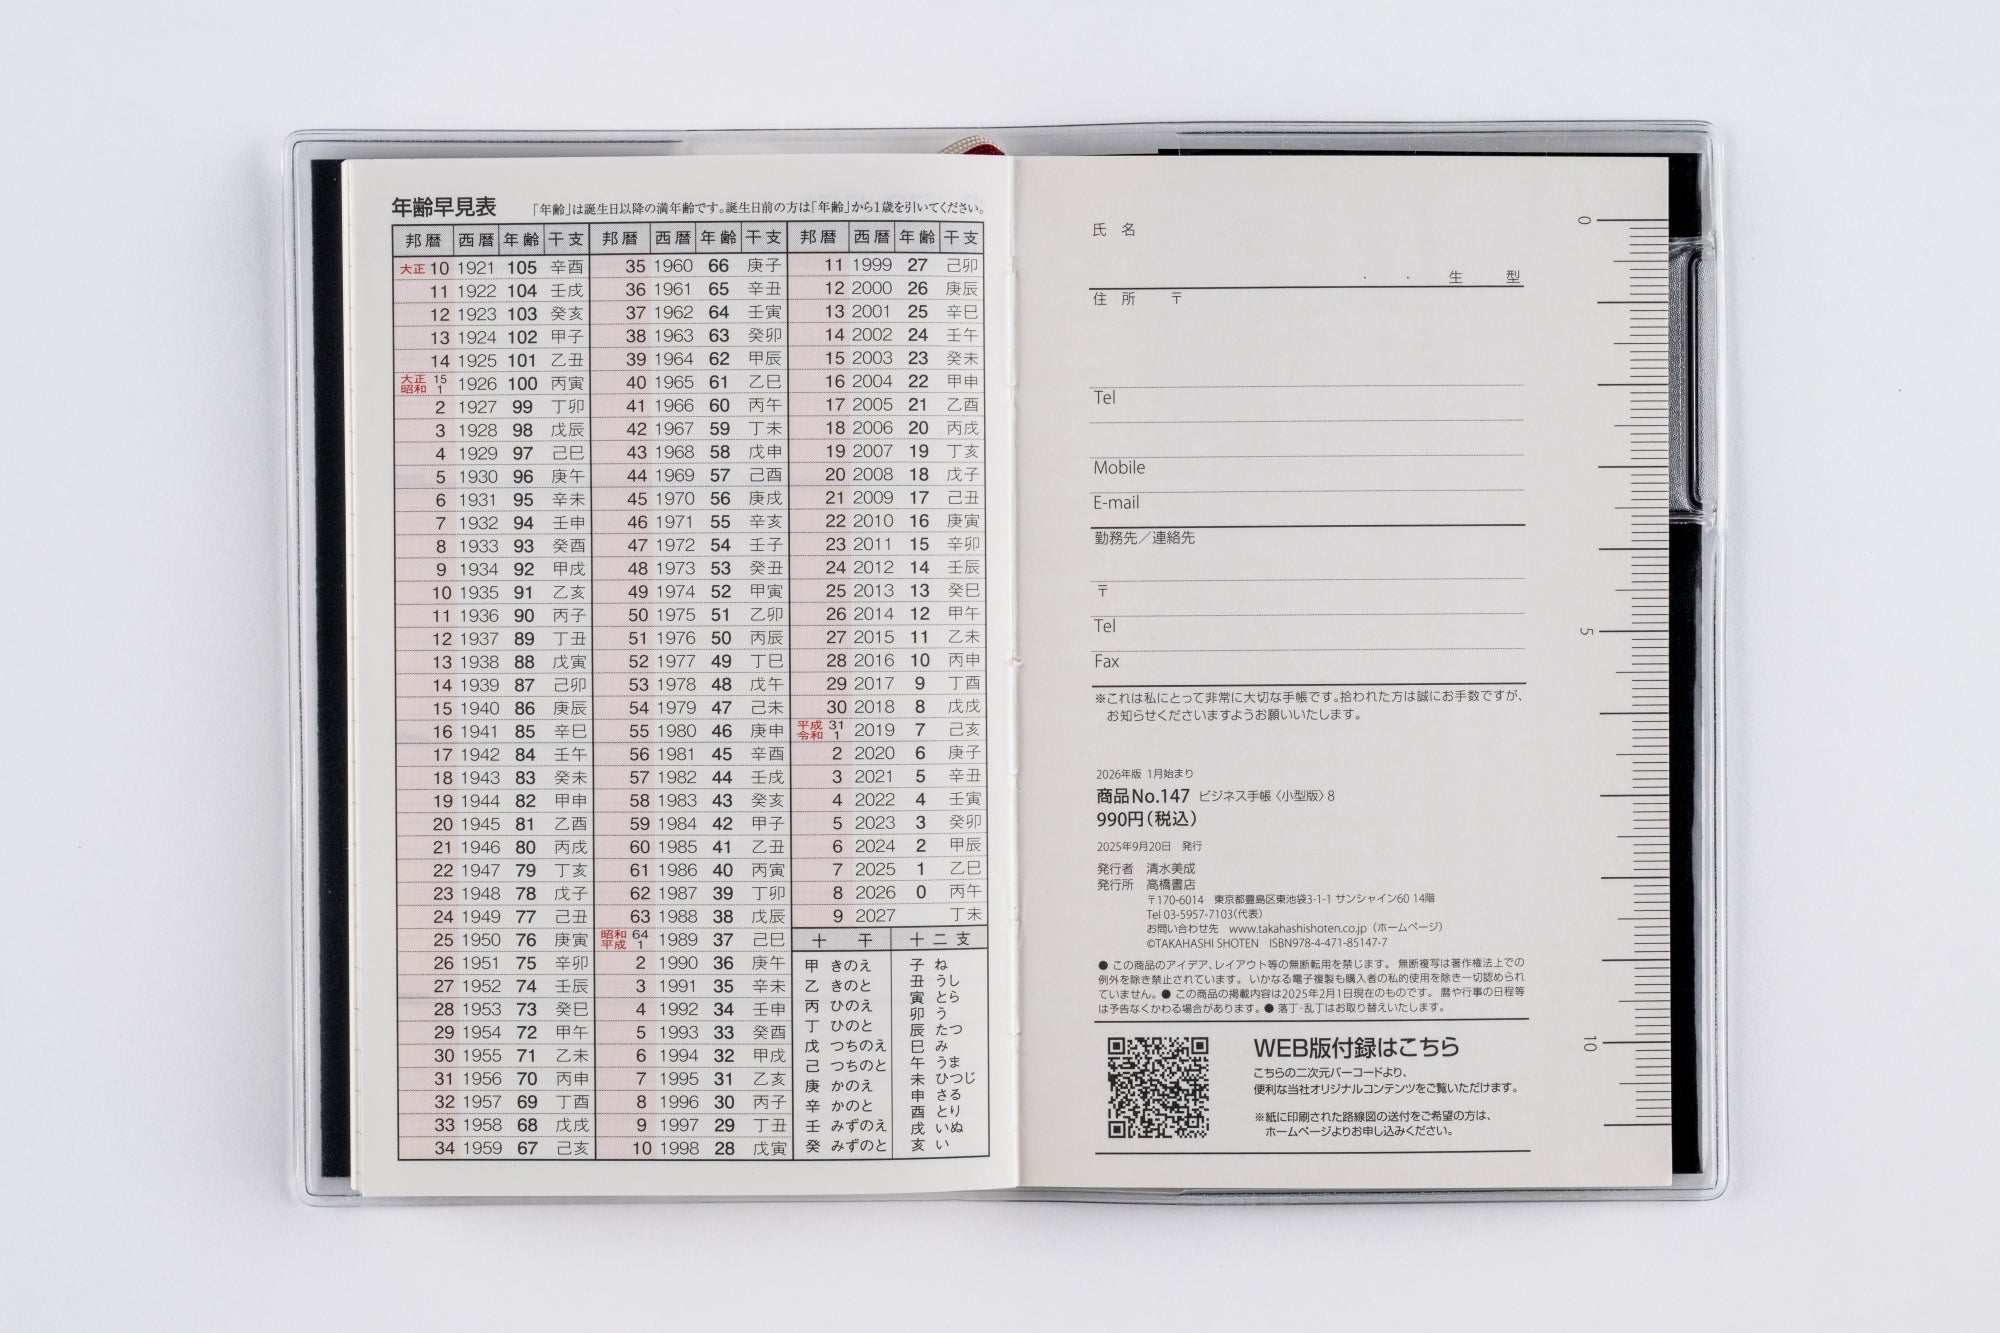 年齢早見表 「年齢」は誕生日以降の満年齢です。誕生日前の方は「年齢」から1歳を引いてください。
邦暦 西暦 年齢 干支 邦暦 西暦 年齢 干支 邦暦 西暦 年齢 干支
大正 10 1921 105 辛酉 35 1960 66 庚子 11 1999 27 己卯
11 1922 104 壬戌 36 1961 65 辛丑 12 2000 26 庚辰
12 1923 103 癸亥 37 1962 64 壬寅 13 2001 25 辛巳
13 1924 102 甲子 38 1963 63 癸卯 14 2002 24 壬午
14 1925 101 乙丑 39 1964 62 甲辰 15 2003 23 癸未
大正 15 昭和 1 1926 100 丙寅 40 1965 61 乙巳 16 2004 22 甲申
2 1927 99 丁卯 41 1966 60 丙午 17 2005 21 乙酉
3 1928 98 戊辰 42 1967 59 丁未 18 2006 20 丙戌
4 1929 97 己巳 43 1968 58 戊申 19 2007 19 丁亥
5 1930 96 庚午 44 1969 57 己酉 20 2008 18 戊子
6 1931 95 辛未 45 1970 56 庚戌 21 2009 17 己丑
7 1932 94 壬申 46 1971 55 辛亥 22 2010 16 庚寅
8 1933 93 癸酉 47 1972 54 壬子 23 2011 15 辛卯
9 1934 92 甲戌 48 1973 53 癸丑 24 2012 14 壬辰
10 1935 91 乙亥 49 1974 52 甲寅 25 2013 13 癸巳
11 1936 90 丙子 50 1975 51 乙卯 26 2014 12 甲午
12 1937 89 丁丑 51 1976 50 丙辰 27 2015 11 乙未
13 1938 88 戊寅 52 1977 49 丁巳 28 2016 10 丙申
14 1939 87 己卯 53 1978 48 戊午 29 2017 9 丁酉
15 1940 86 庚辰 54 1979 47 己未 30 2018 8 戊戌
16 1941 85 辛巳 55 1980 46 庚申 平成 31 令和 1 2019 7 己亥
17 1942 84 壬午 56 1981 45 辛酉 2 2020 6 庚子
18 1943 83 癸未 57 1982 44 壬戌 3 2021 5 辛丑
19 1944 82 甲申 58 1983 43 癸亥 4 2022 4 壬寅
20 1945 81 乙酉 59 1984 42 甲子 5 2023 3 癸卯
21 1946 80 丙戌 60 1985 41 乙丑 6 2024 2 甲辰
22 1947 79 丁亥 61 1986 40 丙寅 7 2025 1 乙巳
23 1948 78 戊子 62 1987 39 丁卯 8 2026 0 丙午
24 1949 77 己丑 63 1988 38 戊辰 9 2027 丁未
25 1950 76 庚寅 昭和 64 平成 1 1989 37 己巳
26 1951 75 辛卯 2 1990 36 庚午
27 1952 74 壬辰 3 1991 35 辛未
28 1953 73 癸巳 4 1992 34 壬申
29 1954 72 甲午 5 1993 33 癸酉
30 1955 71 乙未 6 1994 32 甲戌
31 1956 70 丙申 7 1995 31 乙亥
32 1957 69 丁酉 8 1996 30 丙子
33 1958 68 戊戌 9 1997 29 丁丑
34 1959 67 己亥 10 1998 28 戊寅
十干
甲 きのえ
乙 きのと
丙 ひのえ
丁 ひのと
戊 つちのえ
己 つちのと
庚 かのえ
辛 かのと
壬 みずのえ
癸 みずのと
十二支
子 ね
丑 うし
寅 とら
卯 う
辰 たつ
巳 み
午 うま
未 ひつじ
申 さる
酉 とり
戌 いぬ
亥 い
氏 名
・ ・ 生 型
住 所 〒
Tel
Mobile
E-mail
勤務先／連絡先
〒
Tel
Fax
※これは私にとって非常に大切な手帳です。拾われた方は誠にお手数ですが、
お知らせくださいますようお願いいたします。
2026年版 1月始まり
商品No.147 ビジネス手帳〈小型版〉8
990円(税込)
2025年9月20日 発行
発行者 清水美成
発行所 高橋書店
〒170-6014 東京都豊島区東池袋3-1-1 サンシャイン60 14階
Tel 03-5957-7103(代表)
お問い合わせ先 www.takahashishoten.co.jp（ホームページ）
©TAKAHASHI SHOTEN ISBN978-4-471-85147-7
● この商品のアイデア、レイアウト等の無断転用を禁じます。 無断複写は著作権法上での
例外を除き禁止されています。 いかなる電子複製も購入者の私的使用を除き一切認められ
ていません。● この商品の掲載内容は2025年2月1日現在のものです。 暦や行事の日程等
は予告なくかわる場合があります。● 落丁・乱丁はお取り替えいたします。
WEB版付録はこちら
こちらの二次元バーコードより、
便利な当社オリジナルコンテンツをご覧いただけます。
※紙に印刷された路線図の送付をご希望の方は、
ホームページよりお申し込みください。
0
5
10